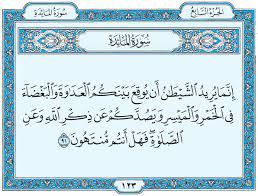 الجزء السابع
سورة المائدة
سورة المائدة
إِنَّمَا يُرِيدُ ٱلشَّيْطَٰنُ أَن يُوقِعَ بَيْنَكُمُ ٱلْعَدَٰوَةَ وَٱلْبَغْضَآءَ
فِي ٱلْخَمْرِ وَٱلْمَيْسِرِ وَيَصُدَّكُمْ عَن ذِكْرِ ٱللَّهِ وَعَنِ
ٱلصَّلَوٰةِ فَهَلْ أَنتُم مُّنتَهُونَ ٩١
١٢٣